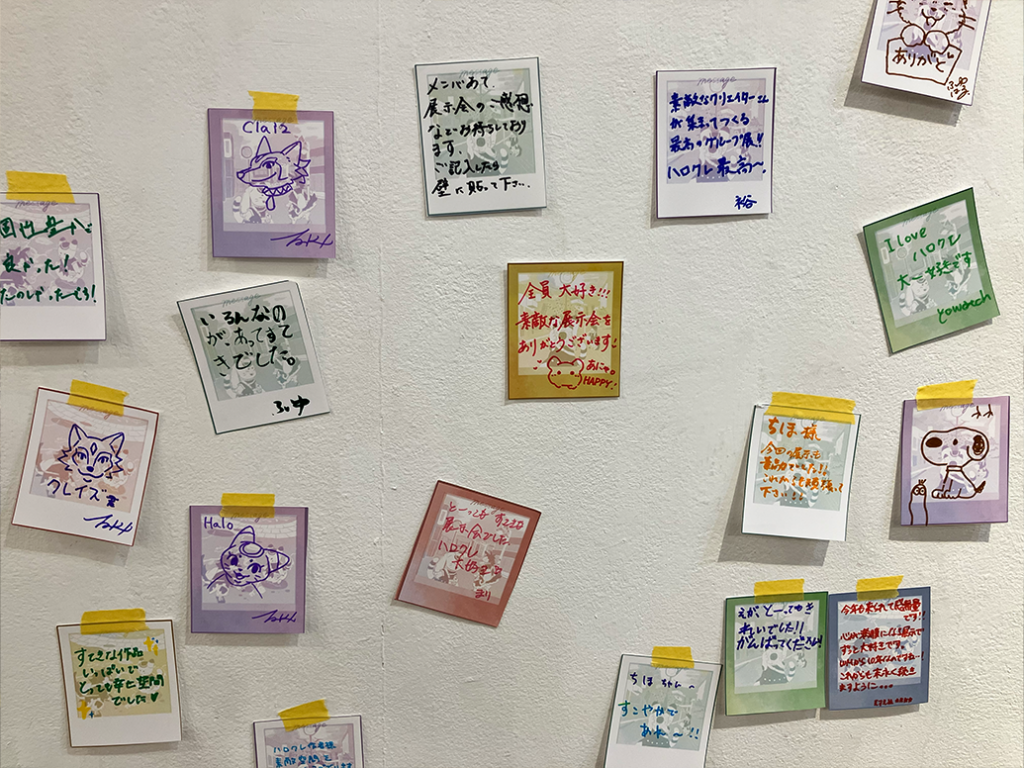 ありがと
メンバーあて
展示会のご感想
などお待ちしており
ます。
ご記入したら
壁に貼って下さい。
素敵なクリエイターさん
が集まってつくる
最高のグループ展!!
ハロクレ最高〜。
Clair
個性豊かで
良かった!
たのしかったです!
I love
ハロクレ
大〜好きです
yowatch
全員 大好き!!!
素敵な展示会を
ありがとうございます!
あにゃ。
HAPPY!
いろんなの
が、あってすて
きでした。
ふゆ
クレイズ
ちほ
今回の展示も
最高でした!!
これからも頑張って
下さい!!
Halo
展示会でした
ハロクレ
大好き
まり
えが、とーってもき
れいでした!!
がんばってください!
今年も来られて感無量
です!!
心が笑顔になる展示で
ずっと大好きです。
これからも末永く続き
ますように…
すてきな作品
いっぱいで
とっても幸せ空間
でした♥
ちほちゃん〜
すこやかで
あれ〜!!
ハロクレ
素敵空間